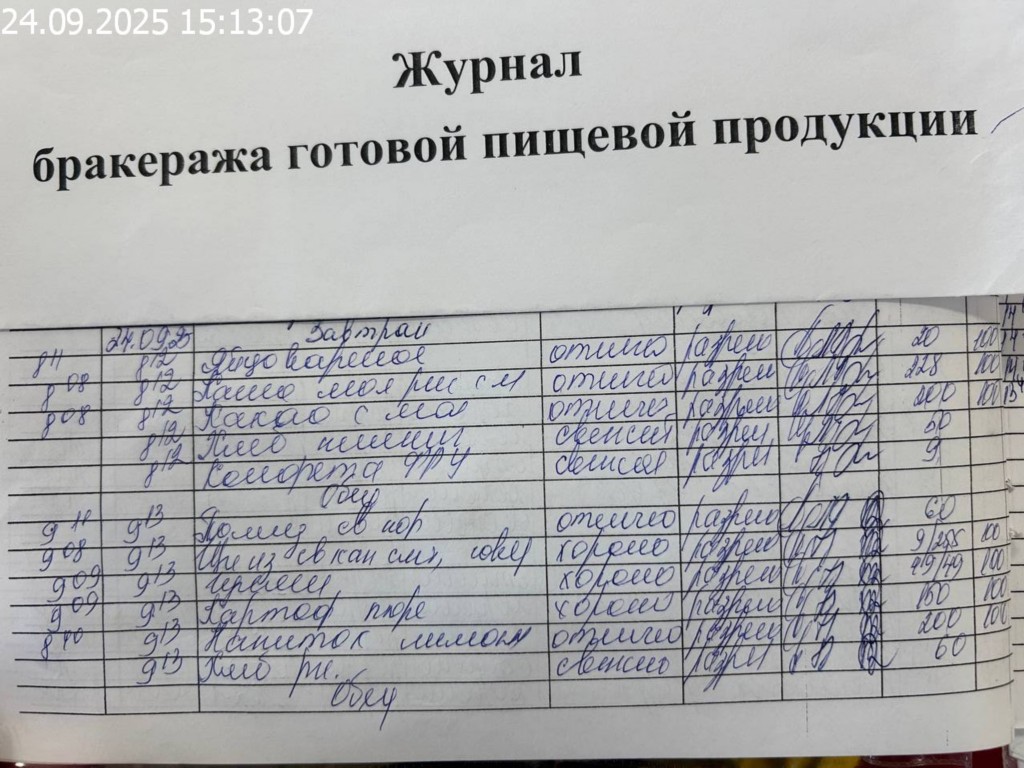 24.09.2025 15:13:07
Журнал
бракеража готовой пищевой продукции
24.09.25 Завтрак
8 11 8 12 Яйцо вареное отлично разреш 20 100
8 08 8 12 Каша мол рис с м отлично разреш 228 100
8 08 8 12 Какао с мол отлично разреш 200 100
8 12 Хлеб пшенич свежий разреш 50
8 12 Конфета свежая разреш 9
Обед
9 13 Помид св пор отлично разреш 60
9 08 9 13 Щи из св кап хорошо разреш 100
9 09 9 13 хорошо разреш 100
9 09 9 13 Картоф пюре хорошо разреш 150 100
9 13 Напиток лимон отлично разреш 200 100
9 13 Хлеб рж. свежий разреш 60
Обед